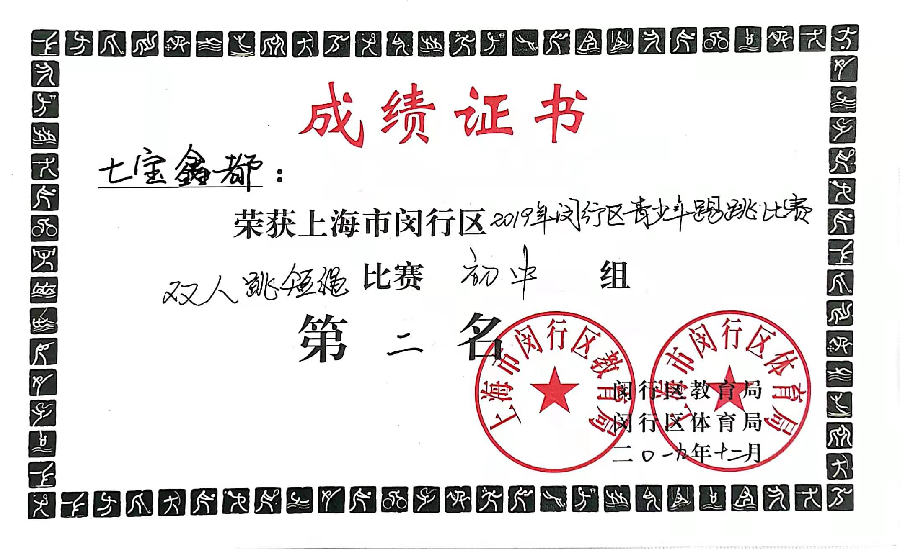 成绩证书
七宝鑫都：
荣获上海市闵行区2019年闵行区青少年踢跳比赛
双人跳短绳比赛 初中 组
第 二 名
上海市闵行区教育局
上海市闵行区体育局
闵行区教育局
闵行区体育局
二〇一九年十二月